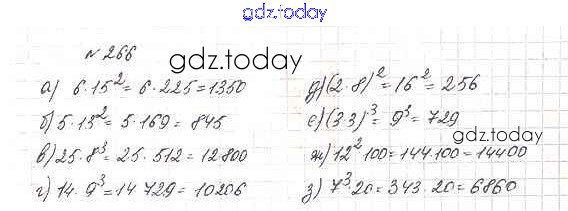 gdz.today
№266
gdz.today
а) 6·15²= 6·225=1350
б) 5·13²= 5·169= 845
в) 25·8³= 25·512= 12800
г) 14·9³=14 729= 10206
д) (2·8)²=16²= 256
е) (3 3)³= 9³= 729
gdz.today
ж) 12² 100= 144·100= 14400
з) 7³·20= 343·20= 6860